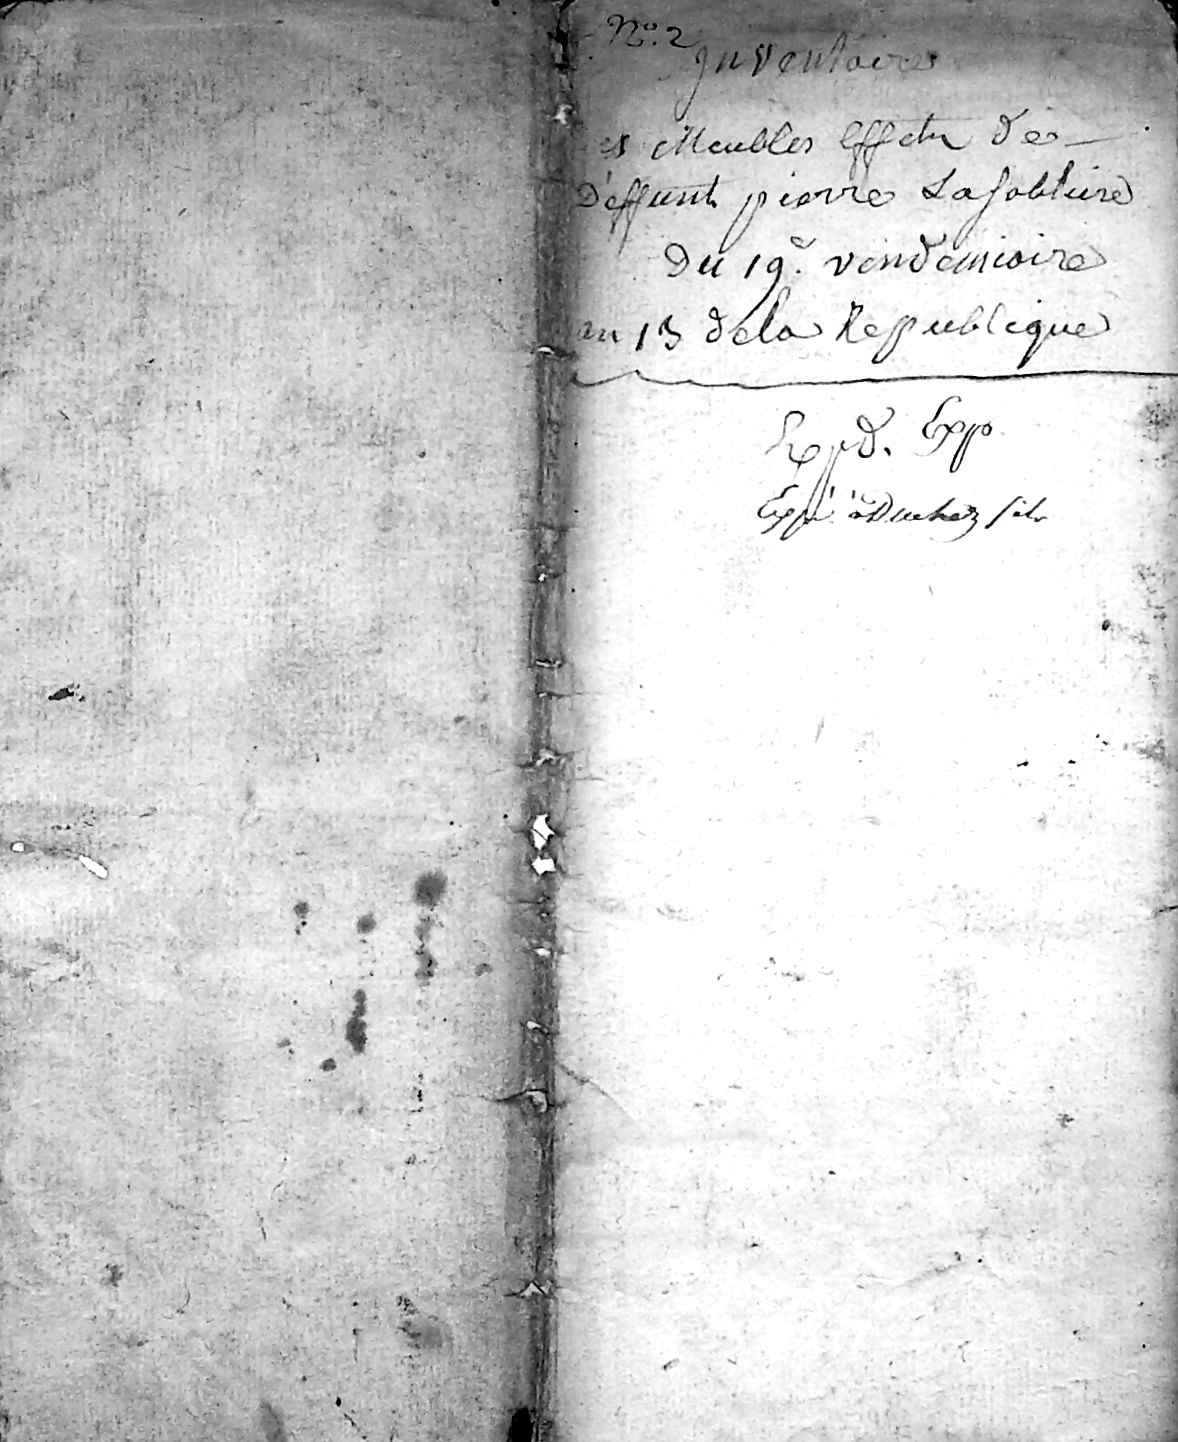 N.o 2
Inventaire
es Meubles Effets de
Deffunt pierre Lasabliere
Du 19.e vendemiaire
an 13 dela Republique
Expd. Exp
Expé à Duchez fils